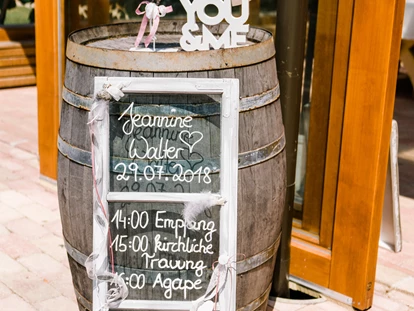 YOU
&ME
Jeannine
Walter
29.07.2018
14:00 Empfang
15:00 kirchliche
Trauung
16:00 Agape